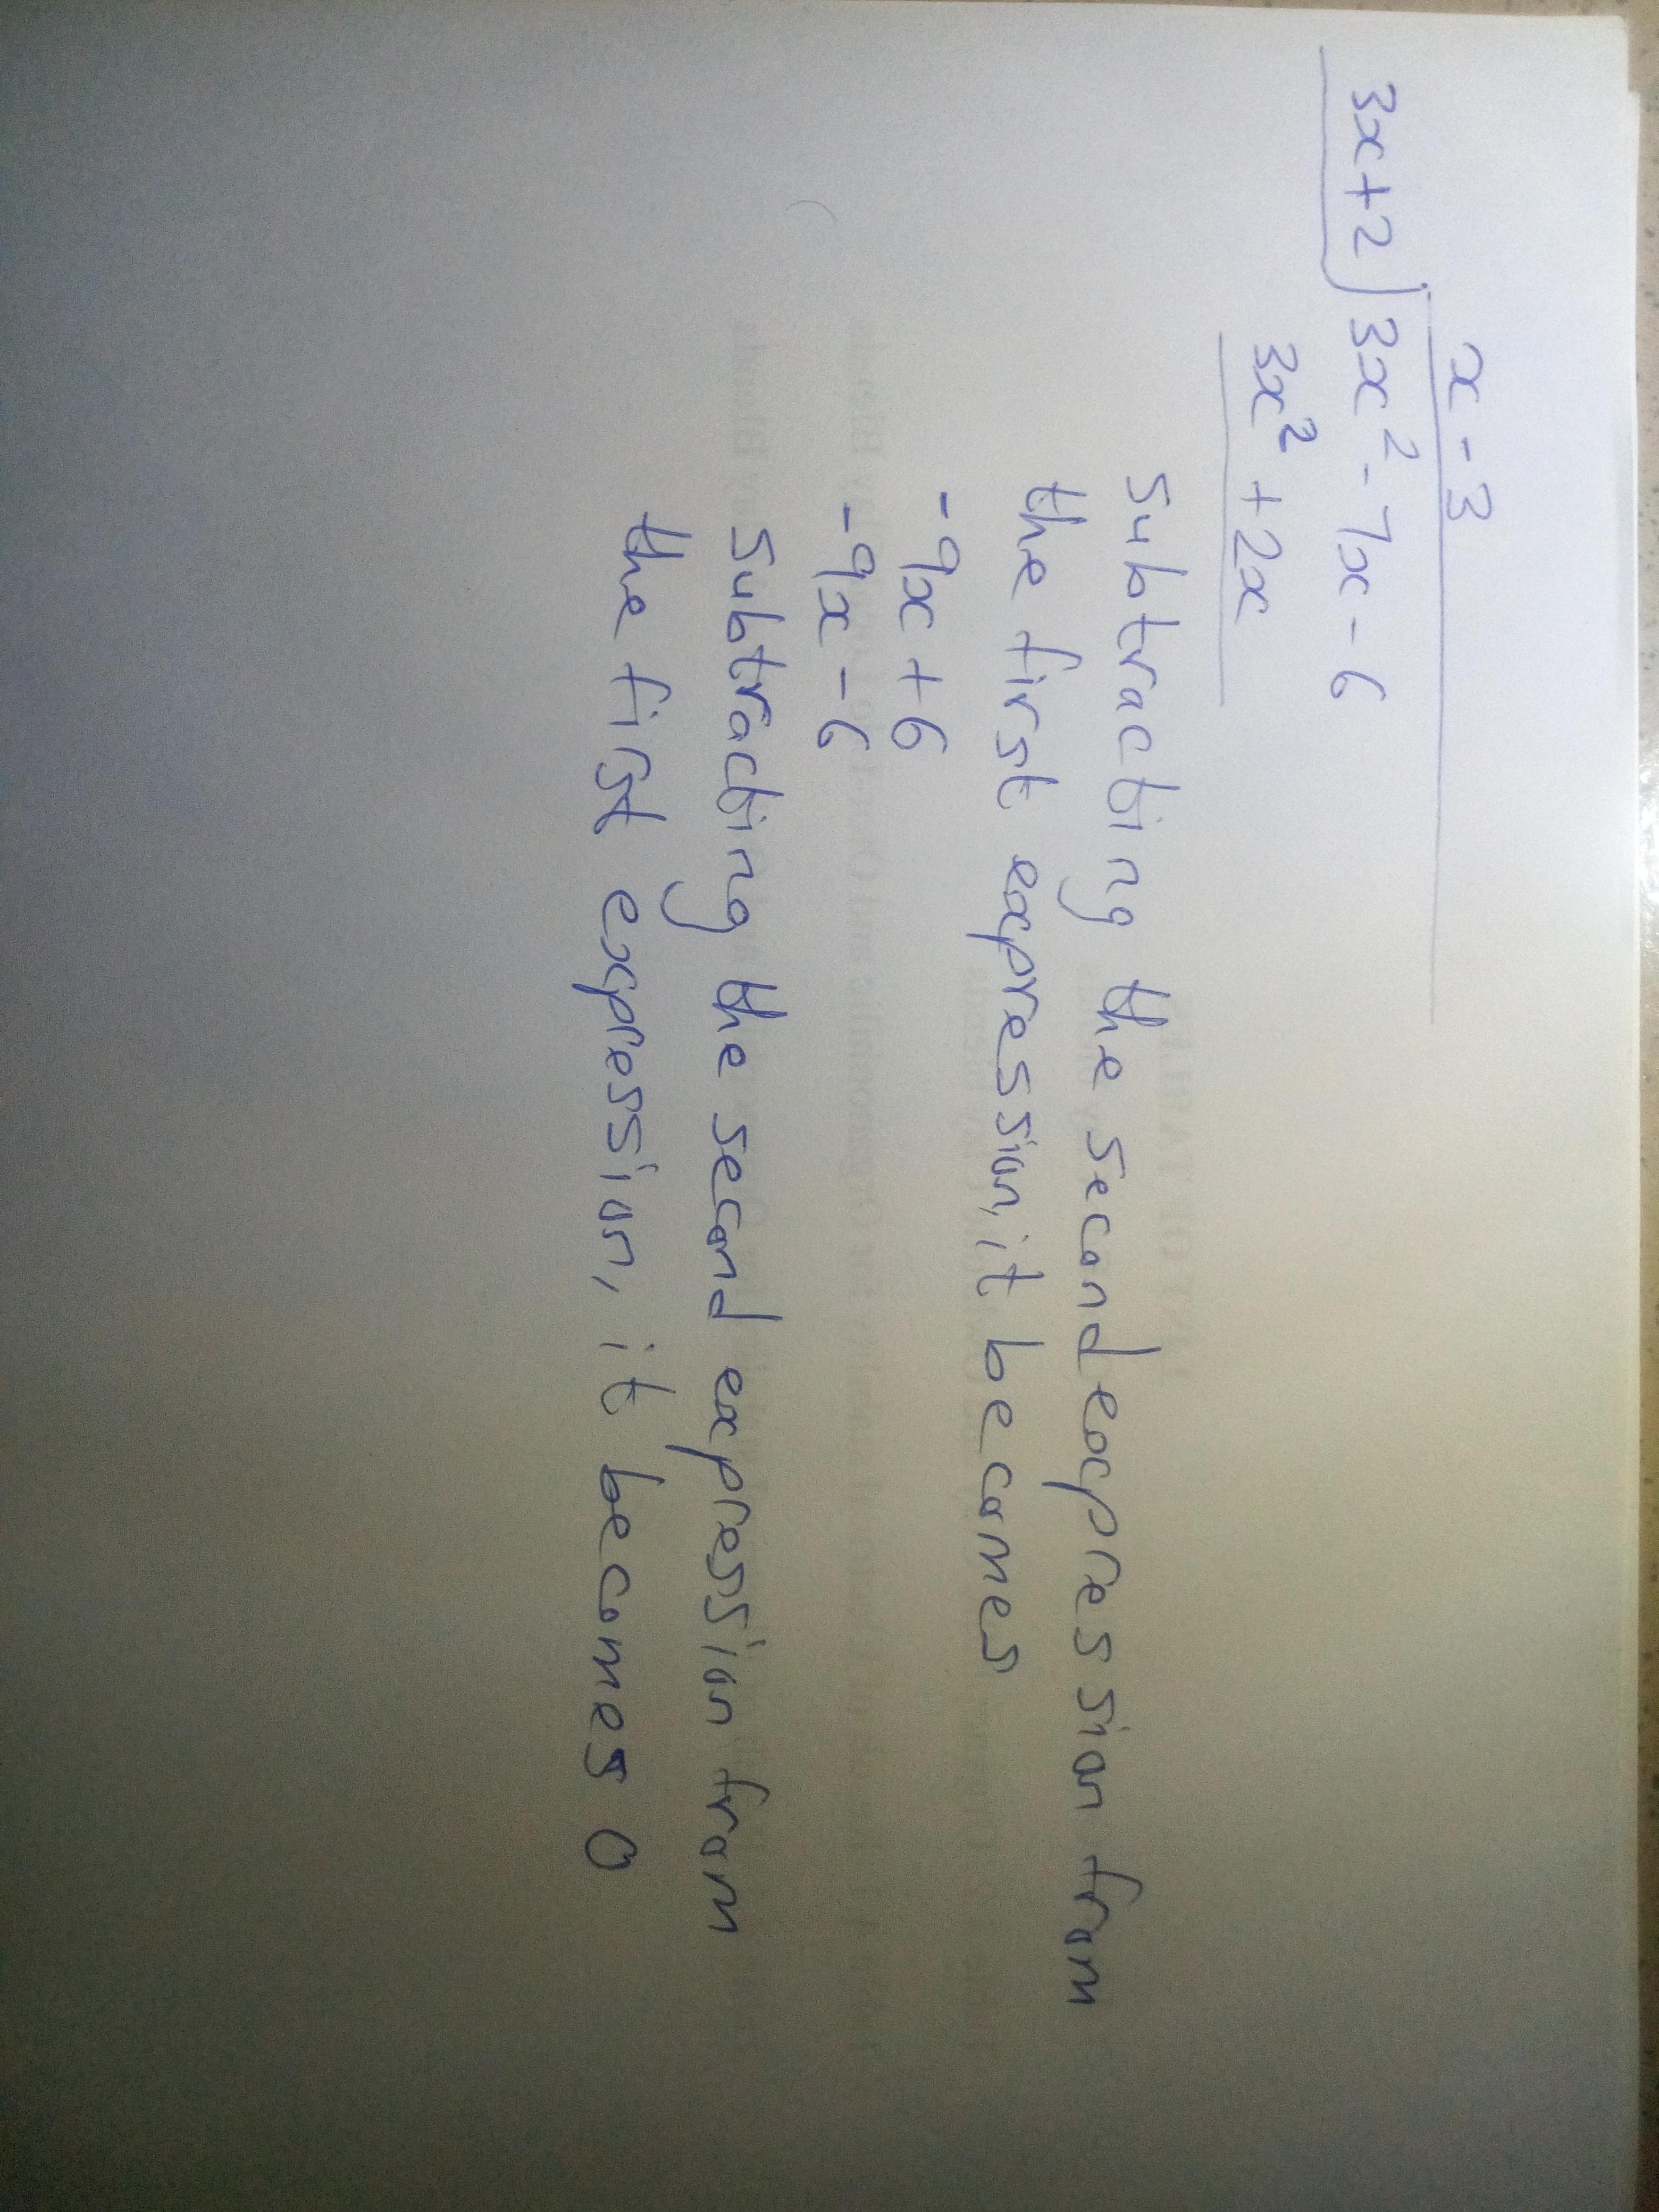 x - 3
3x+2 3x² - 7x - 6
3x² + 2x
subtracting the second expression from
the first expression, it becomes
-9x + 6
-9x - 6
subtracting the second expression from
the first expression, it becomes 0